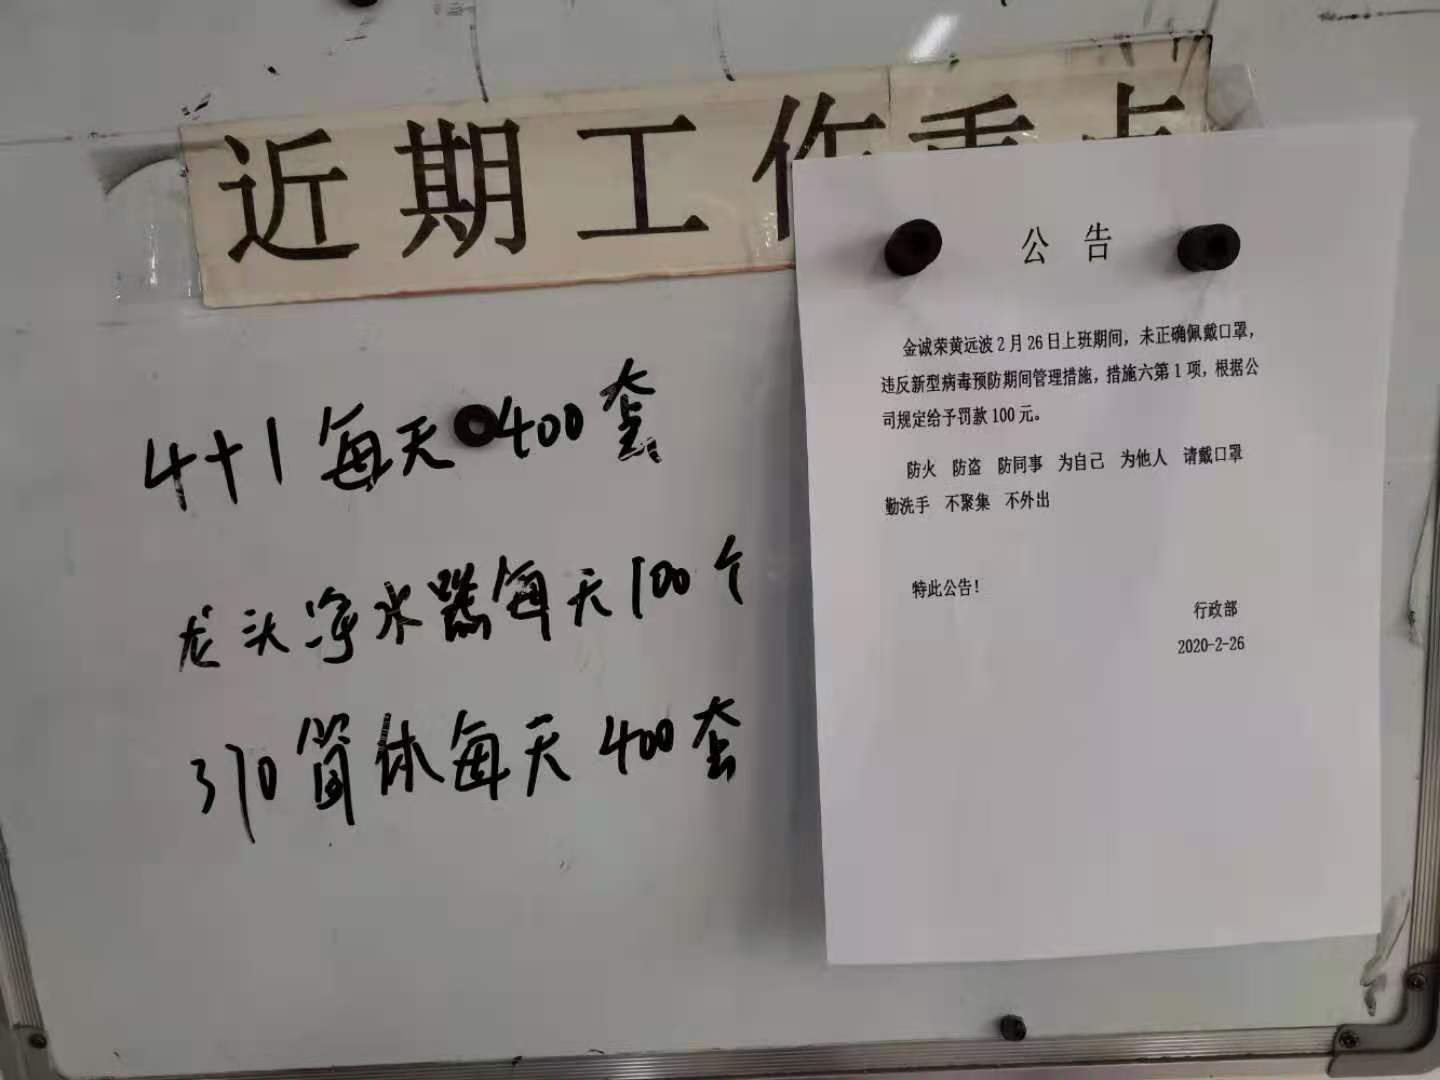 近期工作重点
4+1每天400套
龙头净水器每天100个
370筒体每天400套
公告
金诚荣黄远波2月26日上班期间，未正确佩戴口罩，
违反新型病毒预防期间管理措施，措施六第1项，根据公
司规定给予罚款100元。
防火 防盗 防同事 为自己 为他人 请戴口罩
勤洗手 不聚集 不外出
特此公告!
行政部
2020-2-26